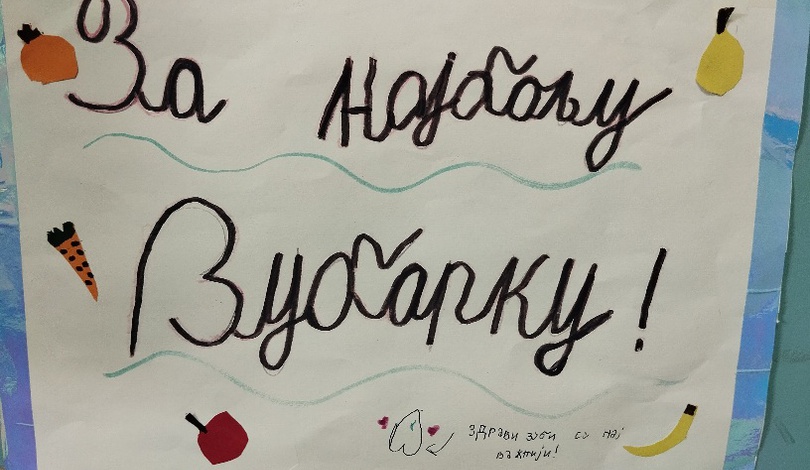 За најбољу
Зубарку!
здрави зуби су нај
важнији!